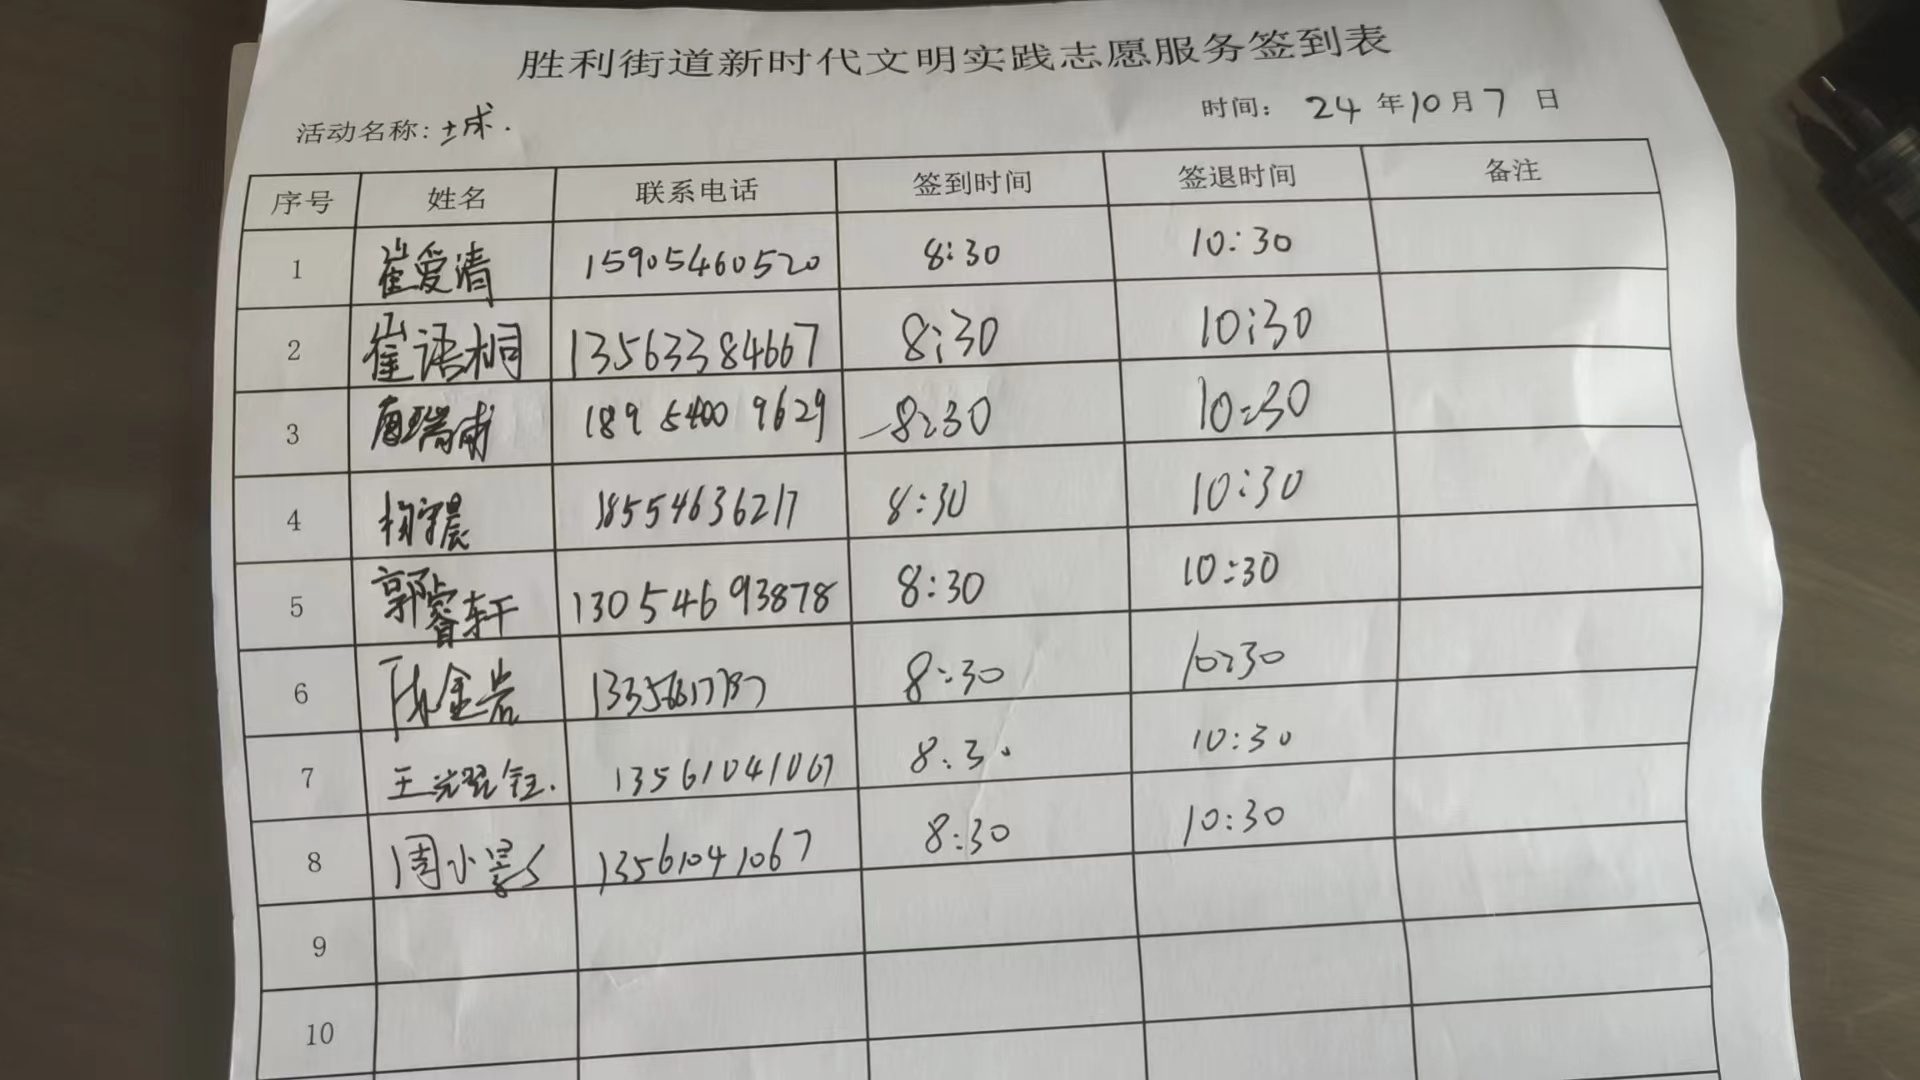 胜利街道新时代文明实践志愿服务签到表
活动名称: 时间: 24 年 10 月 7 日
序号 姓名 联系电话 签到时间 签退时间 备注
1 崔爱清 15905460520 8:30 10:30
2 崔语桐 13563384667 8:30 10:30
3 18954009629 8:30 10:30
4 18554636217 8:30 10:30
5 郭睿轩 13054693878 8:30 10:30
6 陈金岩 8:30 10:30
7 13561041067 8:30 10:30
8 周小影 13561041067 8:30 10:30
9
10